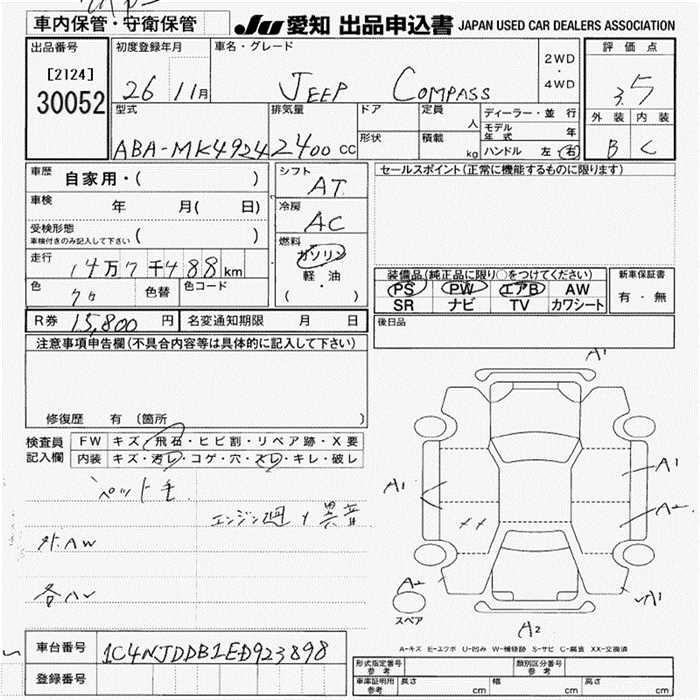 車内保管・守衛保管
JU 愛知 出品申込書 JAPAN USED CAR DEALERS ASSOCIATION
出品番号
[2124]
30052
初度登録年月
26 11月
車名・グレード
JEEP COMPASS
2WD
・
4WD
評価点
3.5
外装 内装
B C
型式
ABA-MK4924
排気量
2400 cc
ドア
形状
定員
人
積載
kg
ディーラー・並行
モデル年式 年
ハンドル 左・右
車歴
自家用・( )
車検
年 月( 日)
受検形態
車検付きのみ記入して下さい ( )
走行
14万7千488km
色
クロ
色替
色コード
シフト
AT
冷房
AC
燃料
ガソリン
軽・油
( )
セールスポイント(正常に機能するものに限ります)
装備品(純正品に限り○をつけてください)
PS PW エアB AW
SR ナビ TV カワシート
新車保証書
有・無
後日品
R券 15,800 円
名変通知期限 月 日
注意事項申告欄(不具合内容等は具体的に記入して下さい)
修復歴 有 (箇所 )
検査員
記入欄
FW キズ・飛石・ヒビ割・リペア跡・X要
内装 キズ・汚レ・コゲ・穴・スレ・キレ・破レ
ペット毛
エンジン廻り異音
外AW
各ハレ
A1
A1
A1
A2
XX
A2
A1
A2
スペア
A-キズ E-エクボ U-凹み W-補修跡 S-サビ C-腐食 XX-交換済
車台番号 1C4NJDDB1ED923898
登録番号
形式指定番号
参考
類別区分番号
参考
車庫証明用
参考
長さ cm 幅 cm 高さ cm